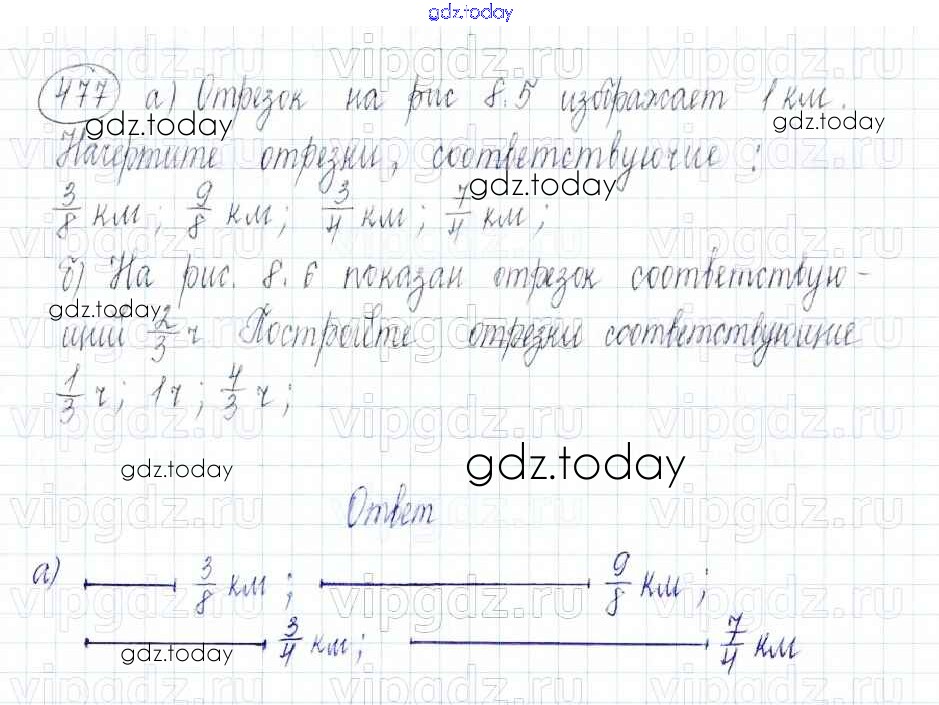 gdz.today
477 а) Отрезок на рис 8.5 изображает 1 км.
gdz.today gdz.today
Начертите отрезки, соответствующие :
gdz.today
3/8 км ; 9/8 км ; 3/4 км ; 7/4 км ;
б) На рис. 8.6 показан отрезок соответствую-
gdz.today
щий 2/3 ч Постройте отрезки соответствующие
1/3 ч ; 1 ч ; 4/3 ч ;
gdz.today gdz.today
Ответ
а) 3/8 км ; 9/8 км ;
3/4 км ; 7/4 км
gdz.today
vipgdz.ru